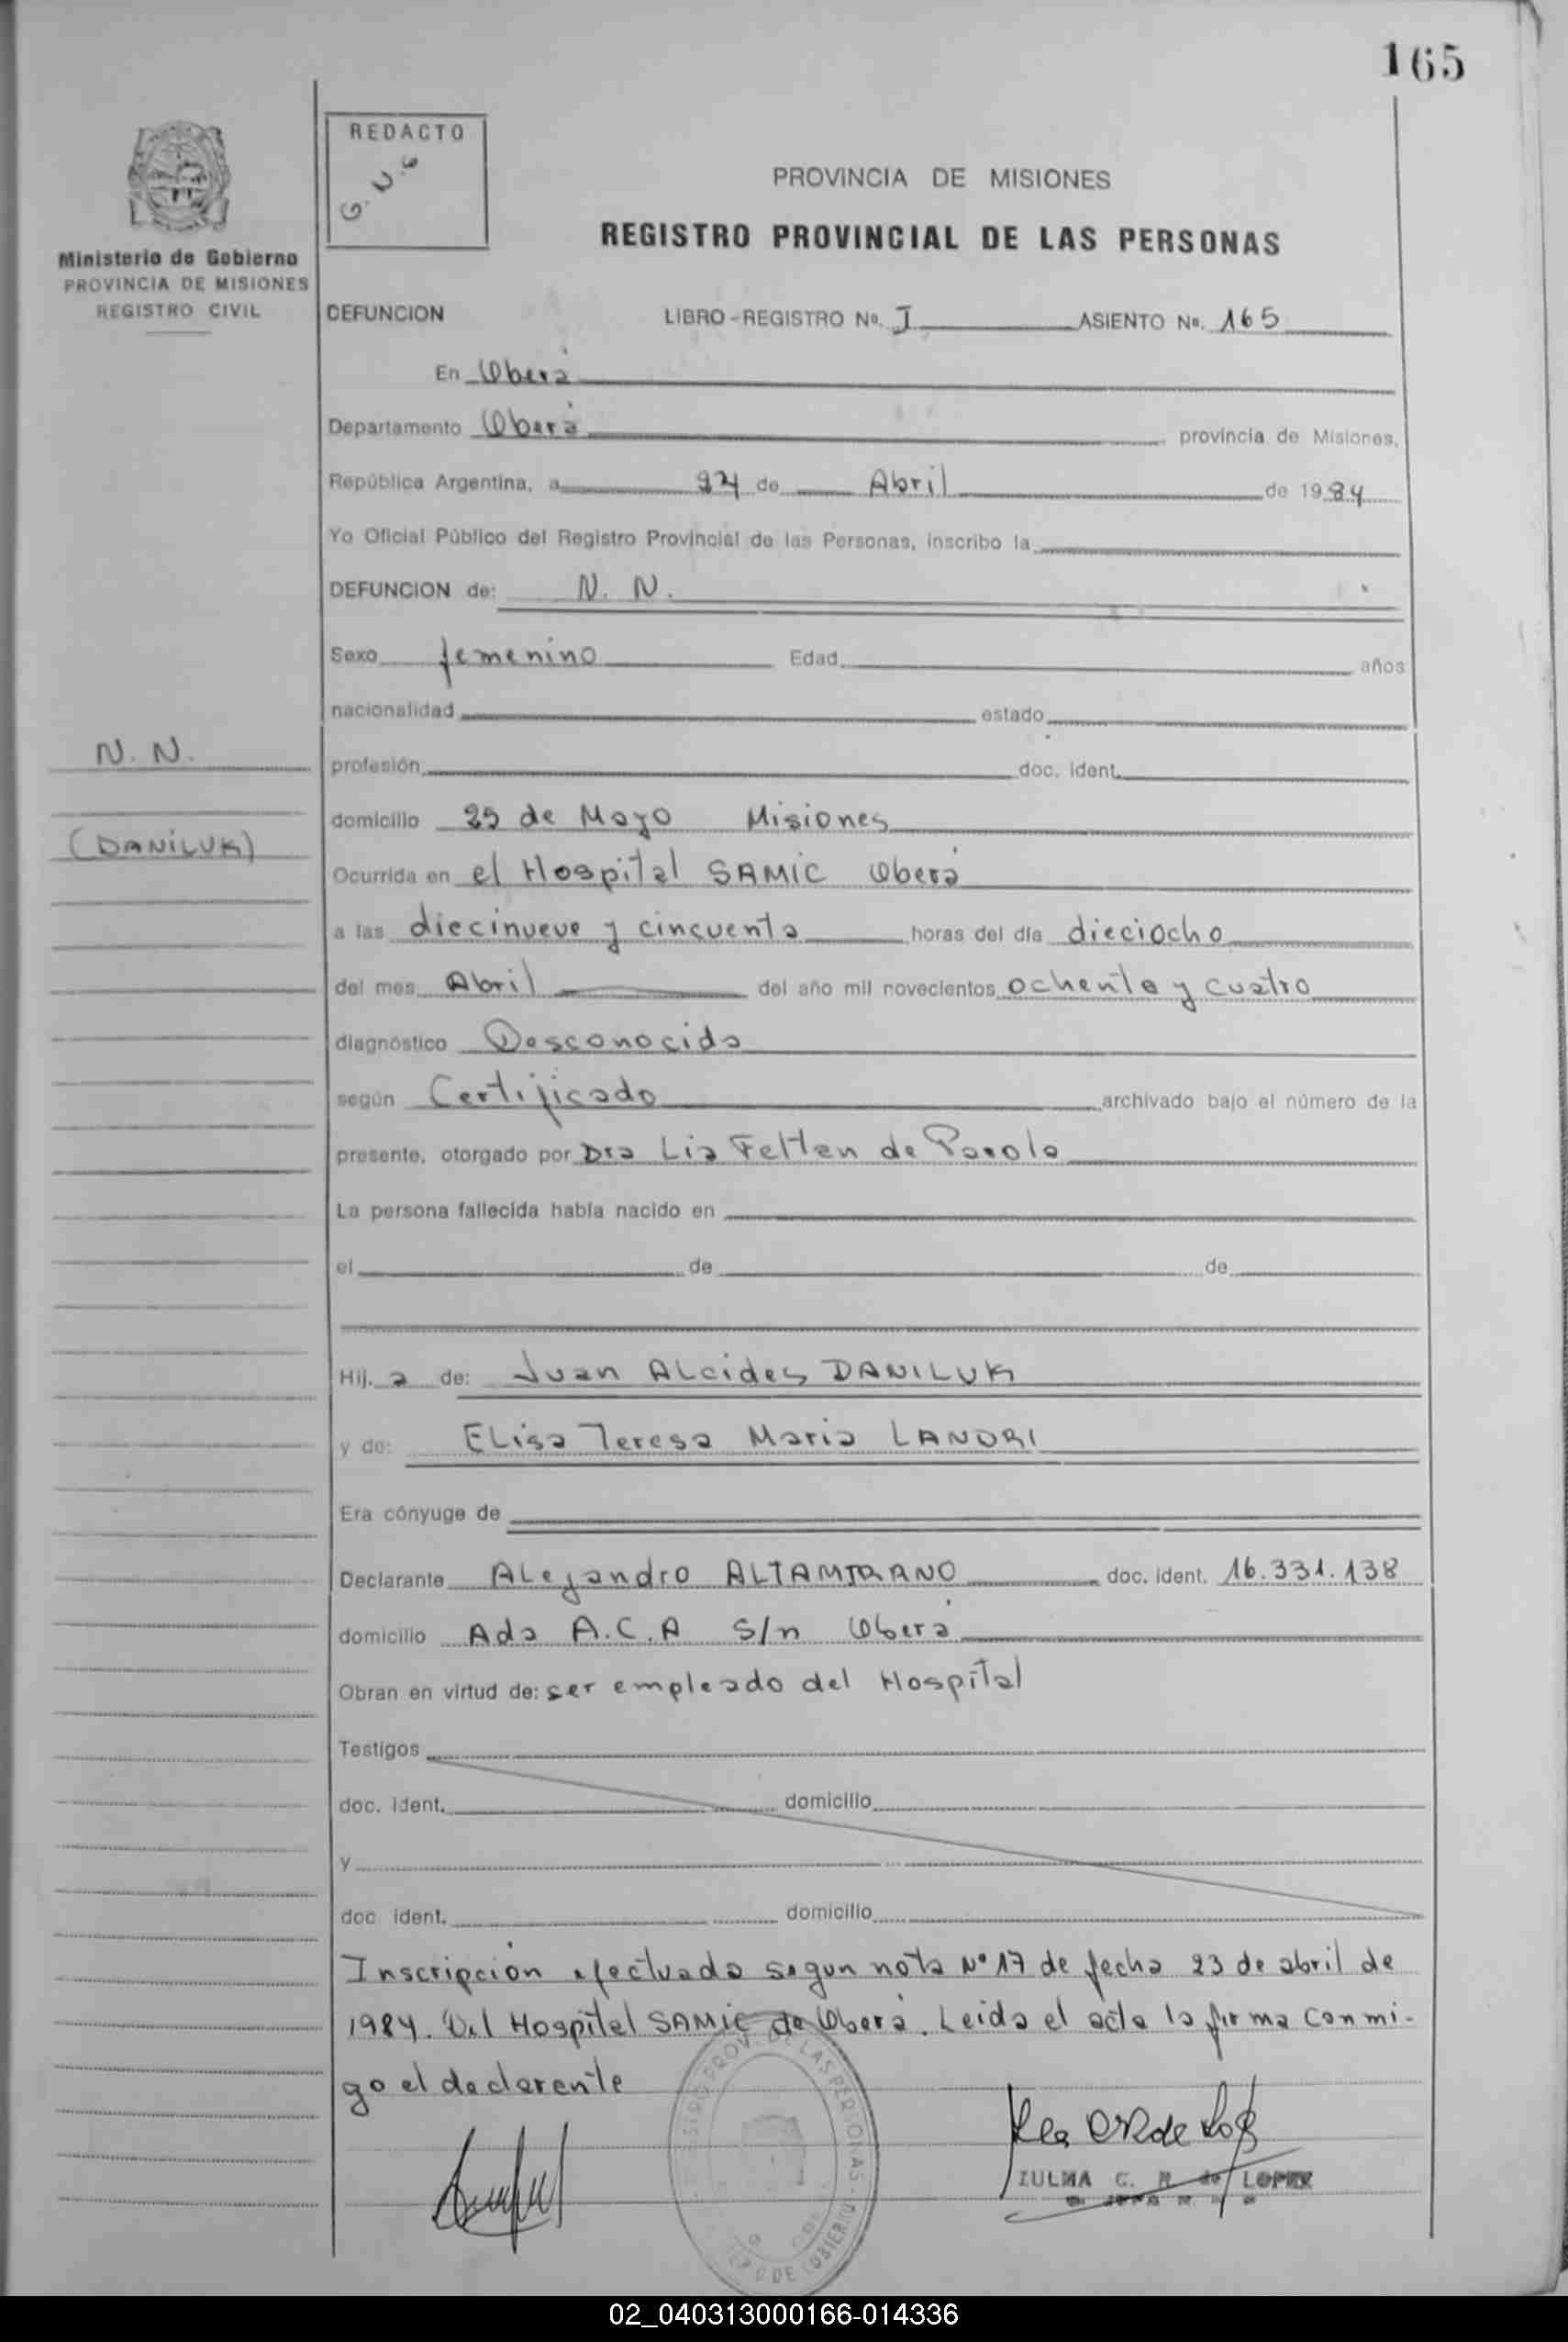 165
REDACTO
G.V.G
Ministerio de Gobierno
PROVINCIA DE MISIONES
REGISTRO CIVIL
PROVINCIA DE MISIONES
REGISTRO PROVINCIAL DE LAS PERSONAS
DEFUNCION LIBRO-REGISTRO Nº. I ASIENTO Nº. 165
En Oberá
Departamento Oberá provincia de Misiones,
República Argentina, a 24 de Abril de 1984
Yo Oficial Público del Registro Provincial de las Personas, inscribo la
DEFUNCION de: N. N.
Sexo femenino Edad años
nacionalidad estado
N. N.
profesión doc. ident.
domicilio 25 de Mayo Misiones
(DANILUK)
Ocurrida en el Hospital SAMIC Oberá
a las diecinueve y cincuenta horas del día dieciocho
del mes Abril del año mil novecientos ochenta y cuatro
diagnóstico Desconocido
según Certificado archivado bajo el número de la
presente, otorgado por Dra Lia Felten de
La persona fallecida había nacido en
el de de
Hij. a de: Juan Alcides DANILUK
y de: Elisa Teresa Maria
Era cónyuge de
Declarante Alejandro ALTAMIRANO doc. ident. 16.331.138
domicilio Ada A.C.A s/n Oberá
Obran en virtud de: ser empleado del Hospital
Testigos
doc. ident. domicilio
y
doc ident. domicilio
Inscripción efectuada segun nota Nº 17 de fecha 23 de abril de
1984. Del Hospital SAMIC de Oberá. Leida el acta la firma conmi-
go el declarente
ZULMA C. R. de LOPEZ
02_040313000166-014336